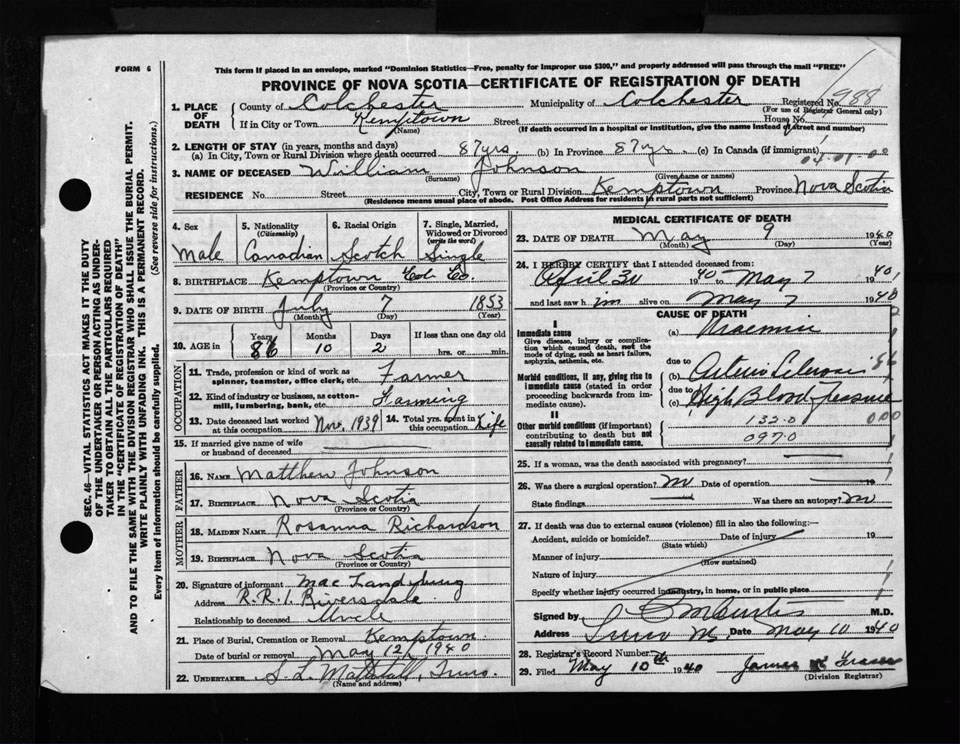 FORM 6
This form if placed in an envelope, marked "Dominion Statistics—Free, penalty for improper use $300," and properly addressed will pass through the mail "FREE"
PROVINCE OF NOVA SCOTIA—CERTIFICATE OF REGISTRATION OF DEATH
1. PLACE OF DEATH
County of Colchester Municipality of Colchester Registered No. 988
(For use of Registrar General only)
If in City or Town Kemptown Street House No.
(Name) (If death occurred in a hospital or institution, give the name instead of street and number)
2. LENGTH OF STAY (in years, months and days)
(a) In City, Town or Rural Division where death occurred 87 yrs. (b) In Province 87 yrs. (c) In Canada (if immigrant)
04-01-00
3. NAME OF DECEASED William Johnson
(Surname) (Given name or names)
RESIDENCE No. Street City, Town or Rural Division Kemptown Province Nova Scotia
(Residence means usual place of abode. Post Office Address for residents in rural parts not sufficient)
4. Sex
Male
5. Nationality
(Citizenship)
Canadian
6. Racial Origin
Scotch
7. Single, Married, Widowed or Divorced
(write the word)
Single
8. BIRTHPLACE Kemptown Col. Co.
(Province or Country)
9. DATE OF BIRTH July 7 1853
(Month) (Day) (Year)
10. AGE in
Years Months Days If less than one day old
86 10 2 hrs. or min.
OCCUPATION
11. Trade, profession or kind of work as spinner, teamster, office clerk, etc. Farmer
12. Kind of industry or business, as cotton-mill, lumbering, bank, etc. Farming
13. Date deceased last worked at this occupation Nov. 1939
14. Total yrs. spent in this occupation Life
15. If married give name of wife or husband of deceased
FATHER
16. NAME Matthew Johnson
17. BIRTHPLACE Nova Scotia
(Province or Country)
MOTHER
18. MAIDEN NAME Rosanna Richardson
19. BIRTHPLACE Nova Scotia
(Province or Country)
20. Signature of informant Mac
Address R.R. 1. Riversdale
Relationship to deceased Uncle
21. Place of Burial, Cremation or Removal Kemptown
Date of burial or removal May 12, 1940
22. UNDERTAKER S. L. Mattatall, Truro.
(Name and address)
MEDICAL CERTIFICATE OF DEATH
23. DATE OF DEATH May 9 1940
(Month) (Day) (Year)
24. I HEREBY CERTIFY that I attended deceased from:
April 30 1940 to May 7 1940
and last saw him alive on May 7 1940
CAUSE OF DEATH
I
Immediate cause
Give disease, injury or complication which caused death, not the mode of dying, such as heart failure, asphyxia, asthenia, etc.
(a) Uraemia
Morbid conditions, if any, giving rise to immediate cause (stated in order proceeding backwards from immediate cause).
due to
(b) Arterio Sclerosis
due to
(c) High Blood Pressure
II
Other morbid conditions (if important) contributing to death but not causally related to immediate cause.
132-0
097-0
86
000
25. If a woman, was the death associated with pregnancy?
26. Was there a surgical operation? no Date of operation 19
State findings Was there an autopsy? no
27. If death was due to external causes (violence) fill in also the following:—
Accident, suicide or homicide? Date of injury 19
(State which)
Manner of injury
(How sustained)
Nature of injury
Specify whether injury occurred in industry, in home, or in public place
Signed by Curtis M.D.
Address Truro Date May 10 1940
28. Registrar's Record Number
29. Filed May 10th 1940 James Fraser
(Division Registrar)
SEC. 46—VITAL STATISTICS ACT MAKES IT THE DUTY
OF THE UNDERTAKER OR PERSON ACTING AS UNDER-
TAKER TO OBTAIN ALL THE PARTICULARS REQUIRED
IN THE "CERTIFICATE OF REGISTRATION OF DEATH"
AND TO FILE THE SAME WITH THE DIVISION REGISTRAR WHO SHALL ISSUE THE BURIAL PERMIT.
WRITE PLAINLY WITH UNFADING INK. THIS IS A PERMANENT RECORD.
Every item of information should be carefully supplied. (See reverse side for instructions.)